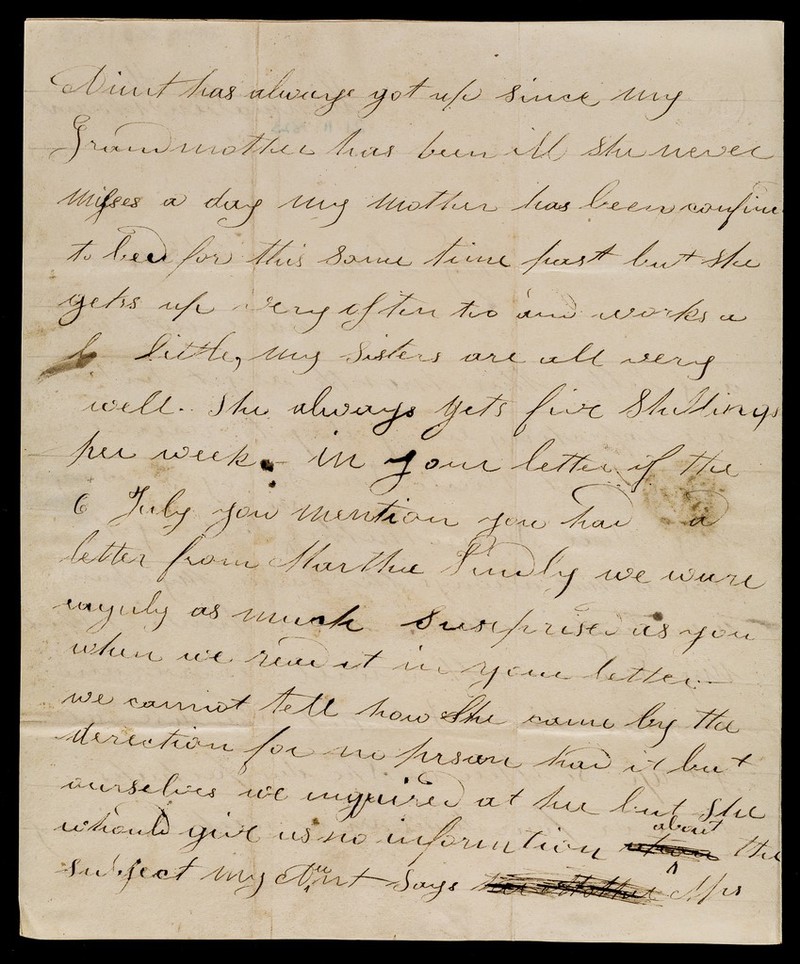 Aunt has always got up since my
Grandmother has been ill she never
misses a day my mother has been confine
to bed for this some time past but she
getss up very often too and works a
little, my Sisters are all very
well. She always gets five Shillings
per week - in your letter of the
6 July you mention you had a
letter from Marthe Lindly we ware
as much surprised as you
when we read it in your letter -
we cannot tell how she came by the
derection for no prson had it but
ourselves we inquired at her but she
whould give us no informtion about the
subject my Aunt says Mrs